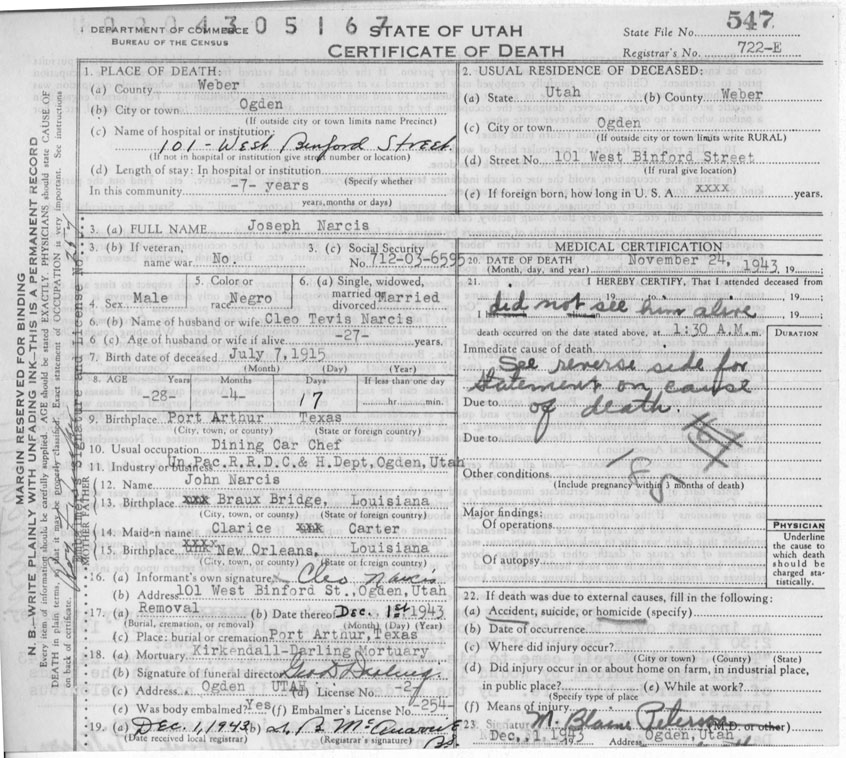 02204305167
DEPARTMENT OF COMMERCE
BUREAU OF THE CENSUS
STATE OF UTAH
CERTIFICATE OF DEATH
State File No. 547
Registrar's No. 722-E
MARGIN RESERVED FOR BINDING
N. B.—WRITE PLAINLY WITH UNFADING INK—THIS IS A PERMANENT RECORD
Every item of information should be carefully supplied. AGE should be stated EXACTLY. PHYSICIANS should state CAUSE OF
DEATH in plain terms, so that it may be properly classified. Exact statement of OCCUPATION is very important. See instructions
on back of certificate.
Embalmer's Signature and License No.
1. PLACE OF DEATH:
(a) County Weber
(b) City or town Ogden
(If outside city or town limits name Precinct)
(c) Name of hospital or institution
101 - West Binford Street
(If not in hospital or institution give street number or location)
(d) Length of stay: In hospital or institution
(Specify whether
In this community -7- years
years, months or days)
2. USUAL RESIDENCE OF DECEASED:
(a) State Utah (b) County Weber
(c) City or town Ogden
(If outside city or town limits write RURAL)
(d) Street No. 101 West Binford Street
(If rural give location)
(e) If foreign born, how long in U. S. A. xxxx years.
3. (a) FULL NAME Joseph Narcis
3. (b) If veteran, name war No.
3. (c) Social Security No. 712-03-6595
4. Sex Male
5. Color or race Negro
6. (a) Single, widowed, married or divorced Married
6. (b) Name of husband or wife Cleo Tevis Narcis
6 (c) Age of husband or wife if alive -27- years.
7. Birth date of deceased July 7, 1915
(Month) (Day) (Year)
8. AGE Years Months Days If less than one day
-28- -4- 17 hr. min.
9. Birthplace Port Arthur Texas
(City, town, or county) (State or foreign country)
10. Usual occupation Dining Car Chef
11. Industry or business Un.Pac.R.R.D.C.& H.Dept,Ogden,Utah
FATHER
12. Name John Narcis
13. Birthplace xxx Braux Bridge, Louisiana
(City, town, or county) (State of foreign country)
MOTHER
14. Maiden name Clarice xxx Carter
15. Birthplace New Orleans, Louisiana
(City, town, or county) (State or foreign country)
16. (a) Informant's own signature Cleo Narcis
(b) Address 101 West Binford St., Ogden, Utah
17. (a) Removal (b) Date thereof Dec. 1st 1943
(Burial, cremation, or removal) (Month) (Day) (Year)
(c) Place: burial or cremation Port Arthur, Texas
18. (a) Mortuary Kirkendall-Darling Mortuary
(b) Signature of funeral director Geo D Darling.
(c) Address Ogden UTAH (d) License No. -2-
(e) Was body embalmed? Yes (f) Embalmer's License No. -254-
19. (a) Dec. 1, 1943 (b)
(Date received local registrar) (Registrar's signature)
MEDICAL CERTIFICATION
20. DATE OF DEATH November 24, 1943 19
(Month, day, and year)
21. I HEREBY CERTIFY, That I attended deceased from
19 to 19
I did not see him alive 19
death occurred on the date stated above, at 1:30 A.M. m.
DURATION
Immediate cause of death
See reverse side for
statement on cause
Due to of death.
Due to
185
Other conditions
(Include pregnancy within 3 months of death)
Major findings:
Of operations
Of autopsy
PHYSICIAN
Underline
the cause to
which death
should be
charged sta-
tistically.
22. If death was due to external causes, fill in the following:
(a) Accident, suicide, or homicide (specify)
(b) Date of occurrence
(c) Where did injury occur?
(City or town) (County) (State)
(d) Did injury occur in or about home on farm, in industrial place,
in public place? (e) While at work?
(Specify type of place
(f) Means of injury
23. Signature M. Blaine Peterson (M.D. or other)
Dec. 1 1943 19 Address Ogden, Utah